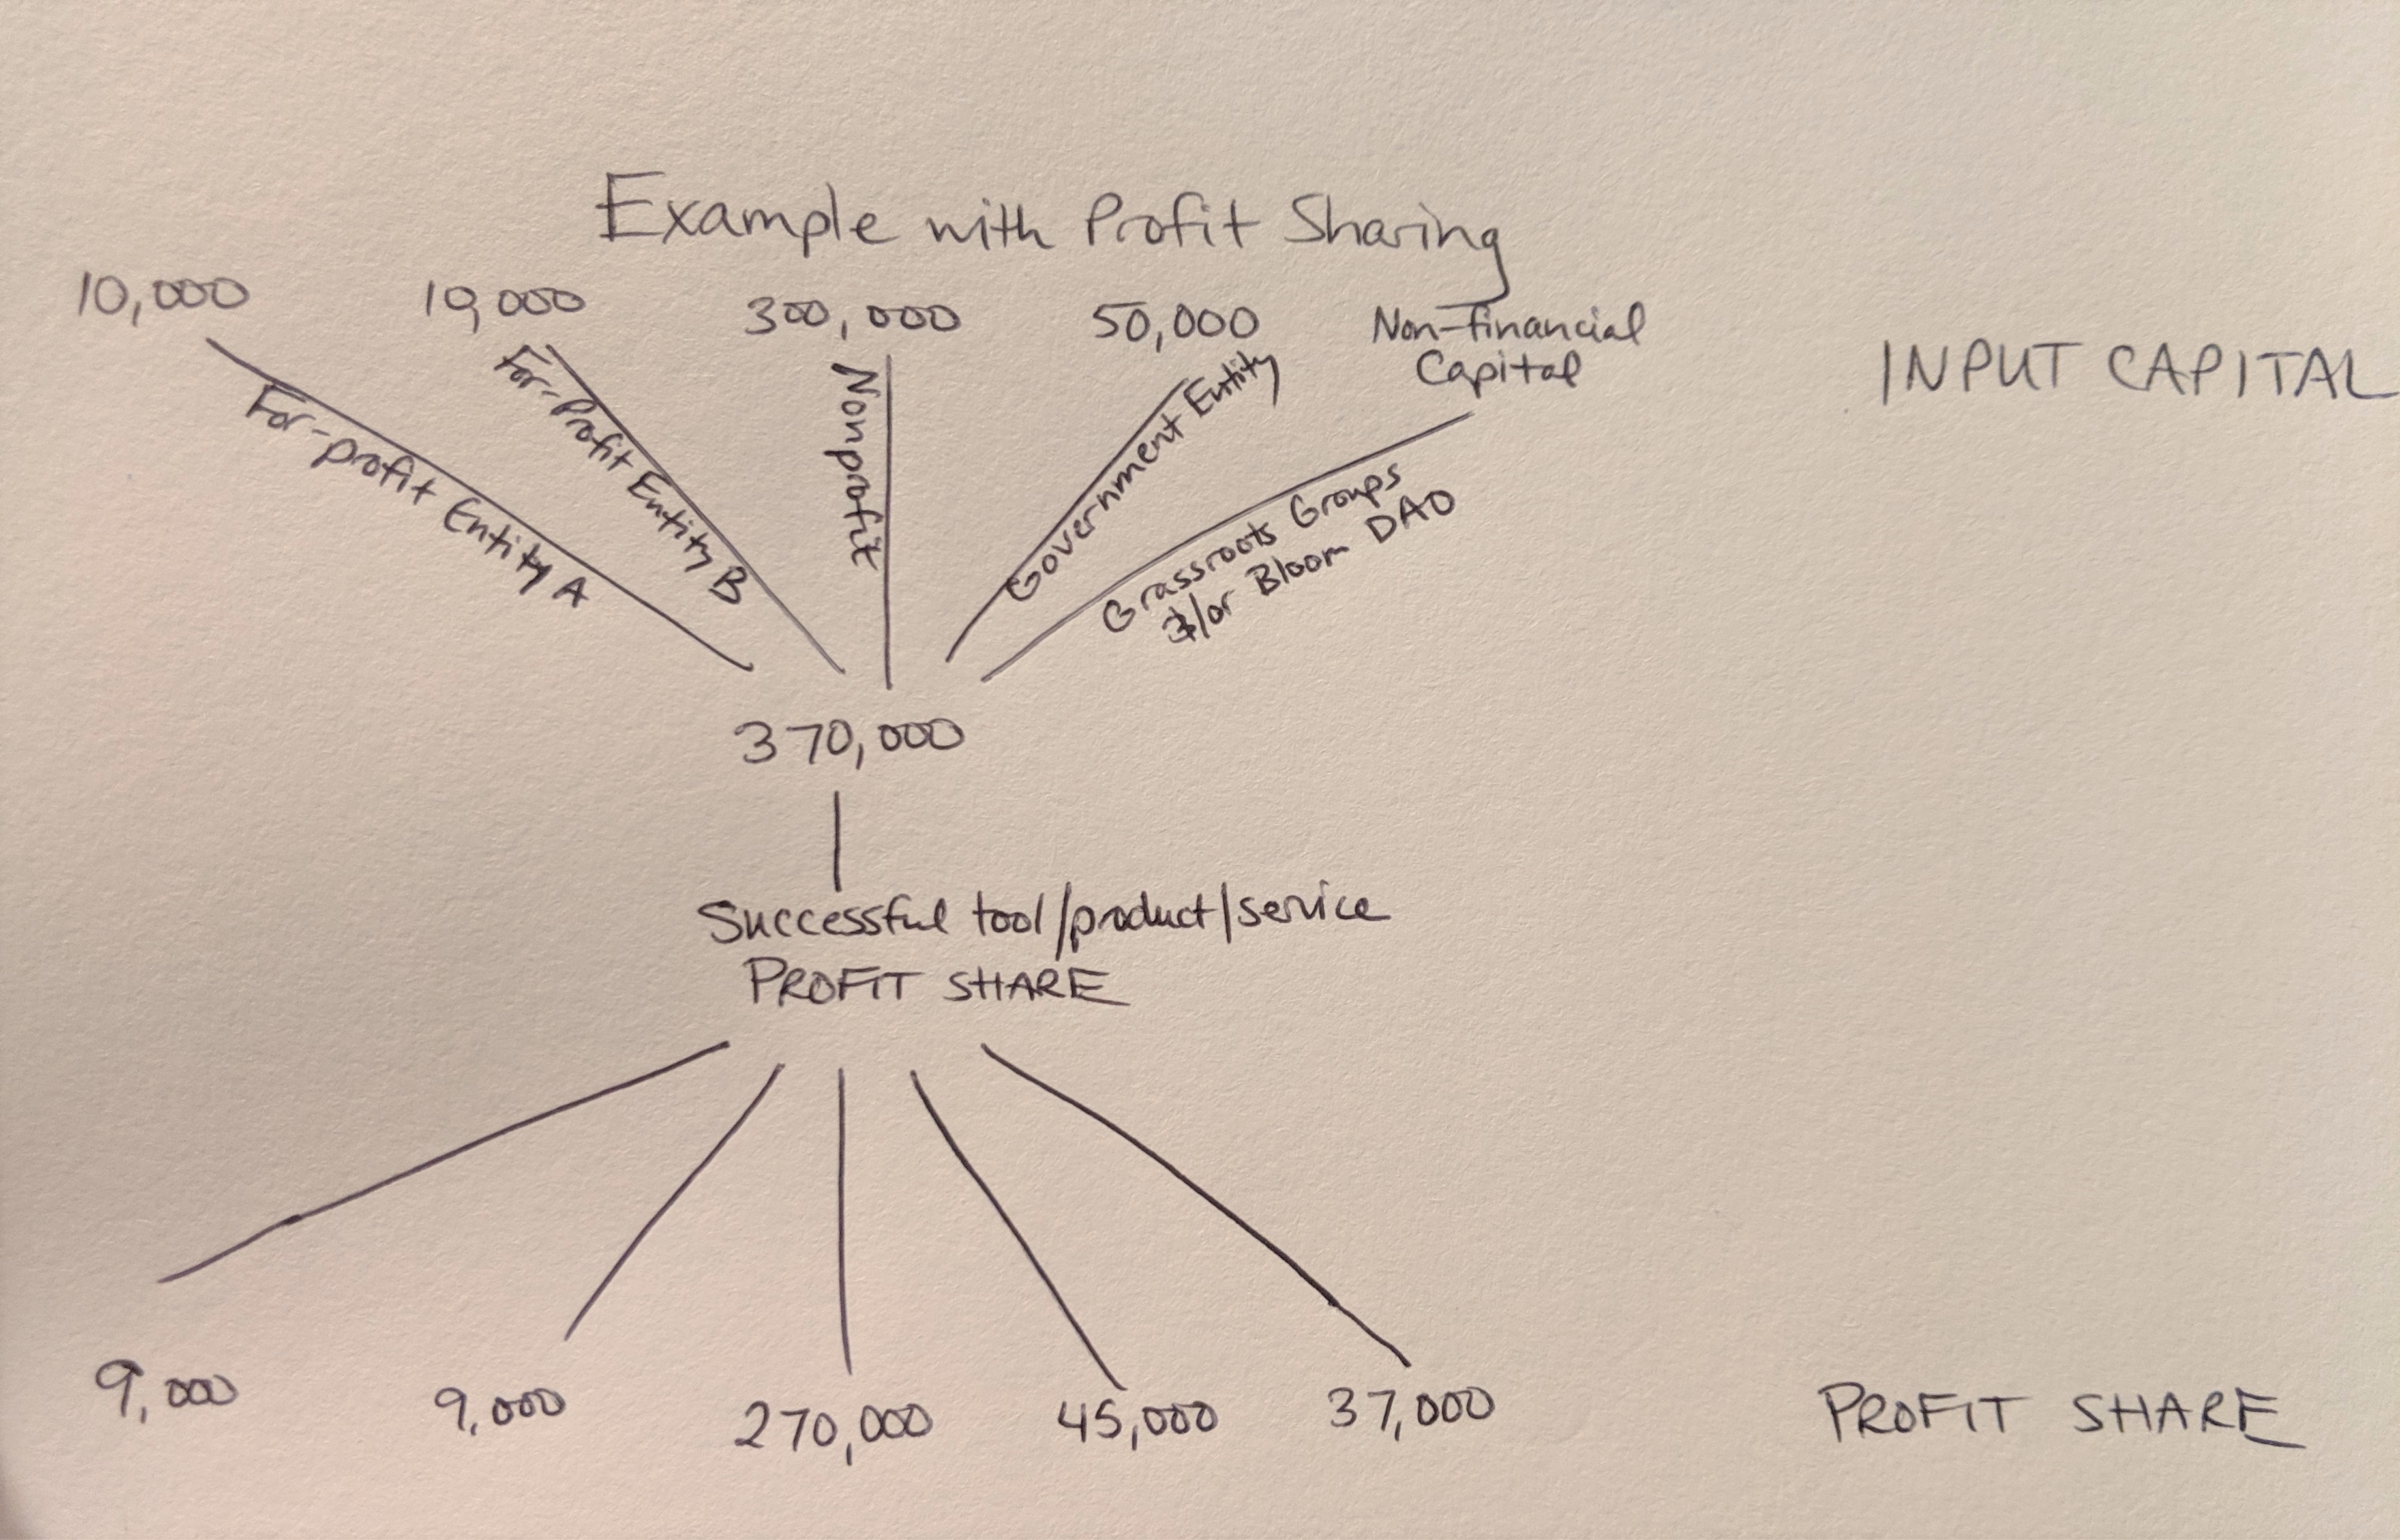 Example with Profit Sharing
10,000
10,000
300,000
50,000
Non-financial
Capital
INPUT CAPITAL
For-profit Entity A
For-Profit Entity B
Nonprofit
Government Entity
Grassroots Groups
&/or Bloom DAO
370,000
Successful tool/product/service
PROFIT SHARE
9,000
9,000
270,000
45,000
37,000
PROFIT SHARE